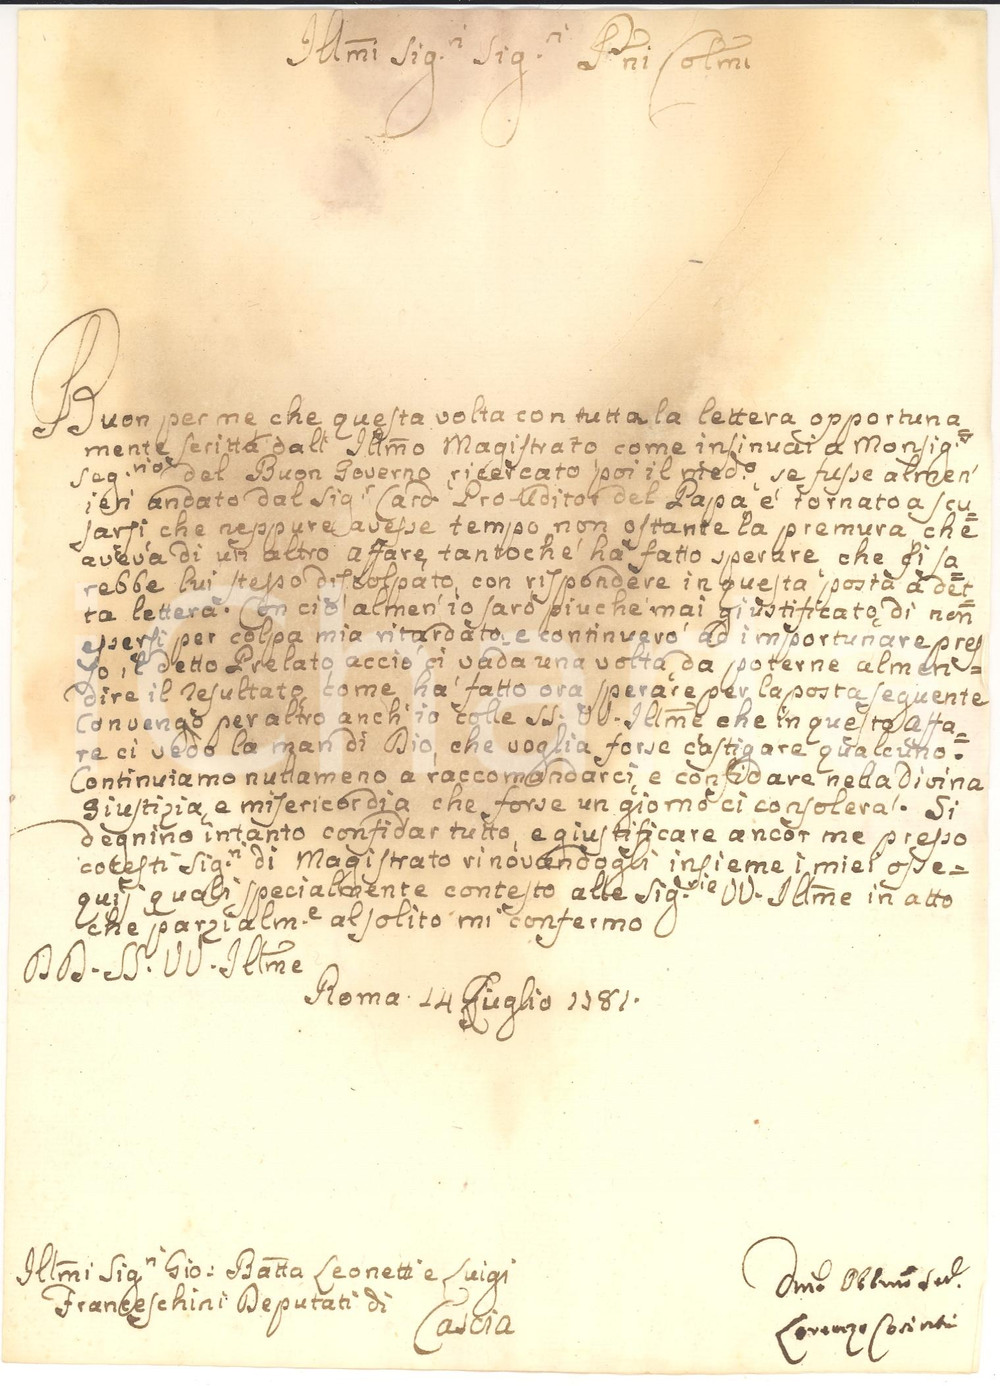 Illmi Sig.ri Sig.ri Pñi Colmi
Buon per me che questa volta con tutta la lettera opportuna=
mente scritta dall' Illmo Magistrato come insinuai a Monsig.r
Seg.rio del Buon Governo ricercato poi il med.o se fusse almen'
ieri andato dal Sig.r Card Pro Uditor del Papa é tornato a scu=
sarsi che neppure avesse tempo non ostante la premura che
aveva di un altro affare, tantoche' ha' fatto sperare, che si sa=
rebbe lui stesso discolpato, con rispondere in questa posta a det=
ta lettera. Con ció almen' io saró piuche' mai giustificato, di non
essersi per colpa mia ritardato, e continueró ad importunare pres=
so il detto Prelato accio' ci vada una volta, da poterne almen'=
dire il resultato, come ha' fatto ora sperare per la posta seguente
Convengo per altro anch' io colle SS: VV. Illme che in questo affa=
re ci vedo la man di Dio, che voglia forse castigare qualcuno.
Continuiamo nullameno a raccomandarci, e confidare nella Divina
Giustizia, e misericordia che forse un giorno ci consolerá. Si
degnino intanto confidar tutto, e giustificare ancor me presso
cotesti Sig.ri di Magistrato rinovandogli insieme i miei osse=
quij quali specialmente contesto alle Sig.rie VV. Illme in atto
che parzialm.e al solito mi confermo
DD. SS. VV. Illme
Roma 14 Luglio 1781.
Illmi Sig.ri Gio: Batta Leonetti e Luigi
Franceschini Deputati di
Cascia
Dmo Obbmo Ser.
Lorenzo Cosinti